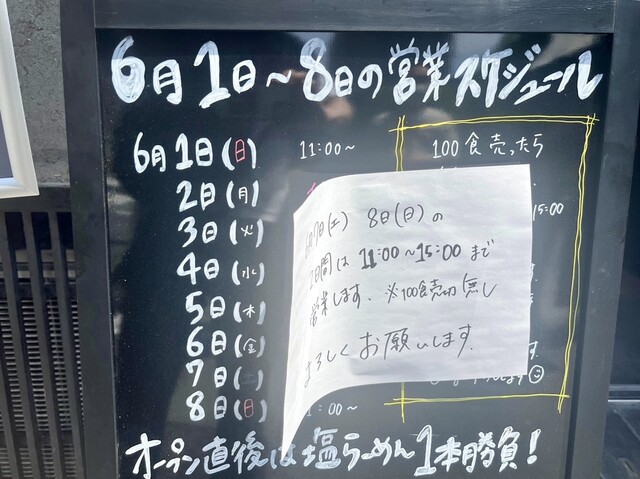 6月1日~8日の営業スケジュール
6月1日(日) 11:00~
2日(月)
3日(火)
4日(水)
5日(木)
6日(金)
7日(土)
8日(日) :00~
100食売ったら
15:00
6月7日(土) 8日(日)の
2日間は 11:00~15:00 まで
営業します。※100食売切無し
よろしくお願いします。
ます☺
オープン直後は塩らーめん1本勝負!